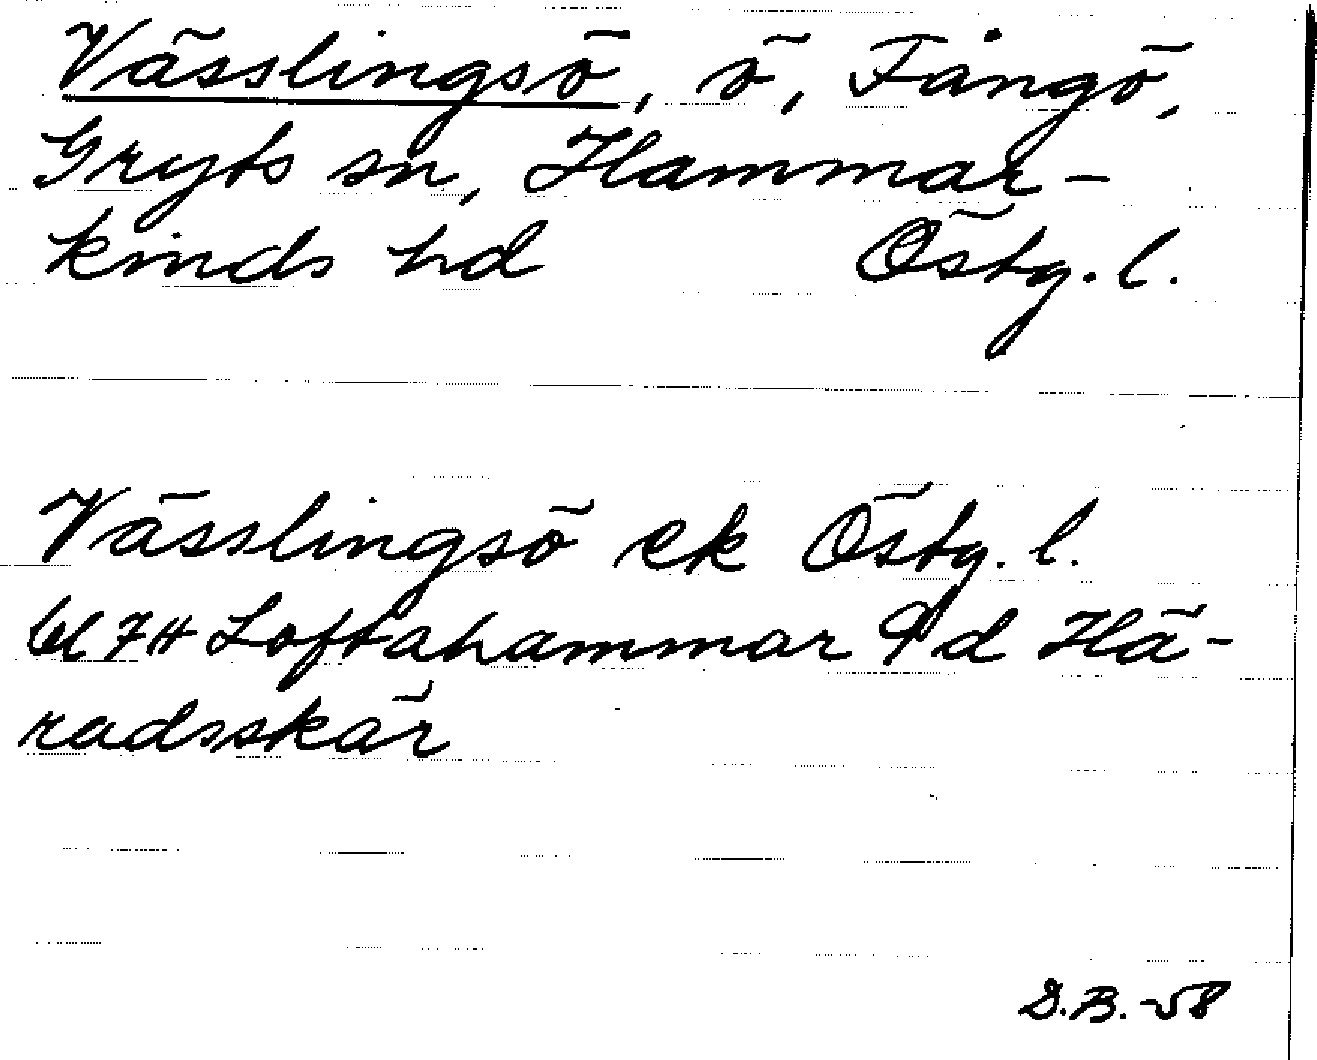 Vässlingsö, ö, Fångö,
Gryts sn, Hammar-
kinds hd Östg. l.
Vässlingsö ek Östg. l.
bl 7H Loftahammar 9d Hä-
radsskär
D.B. -58